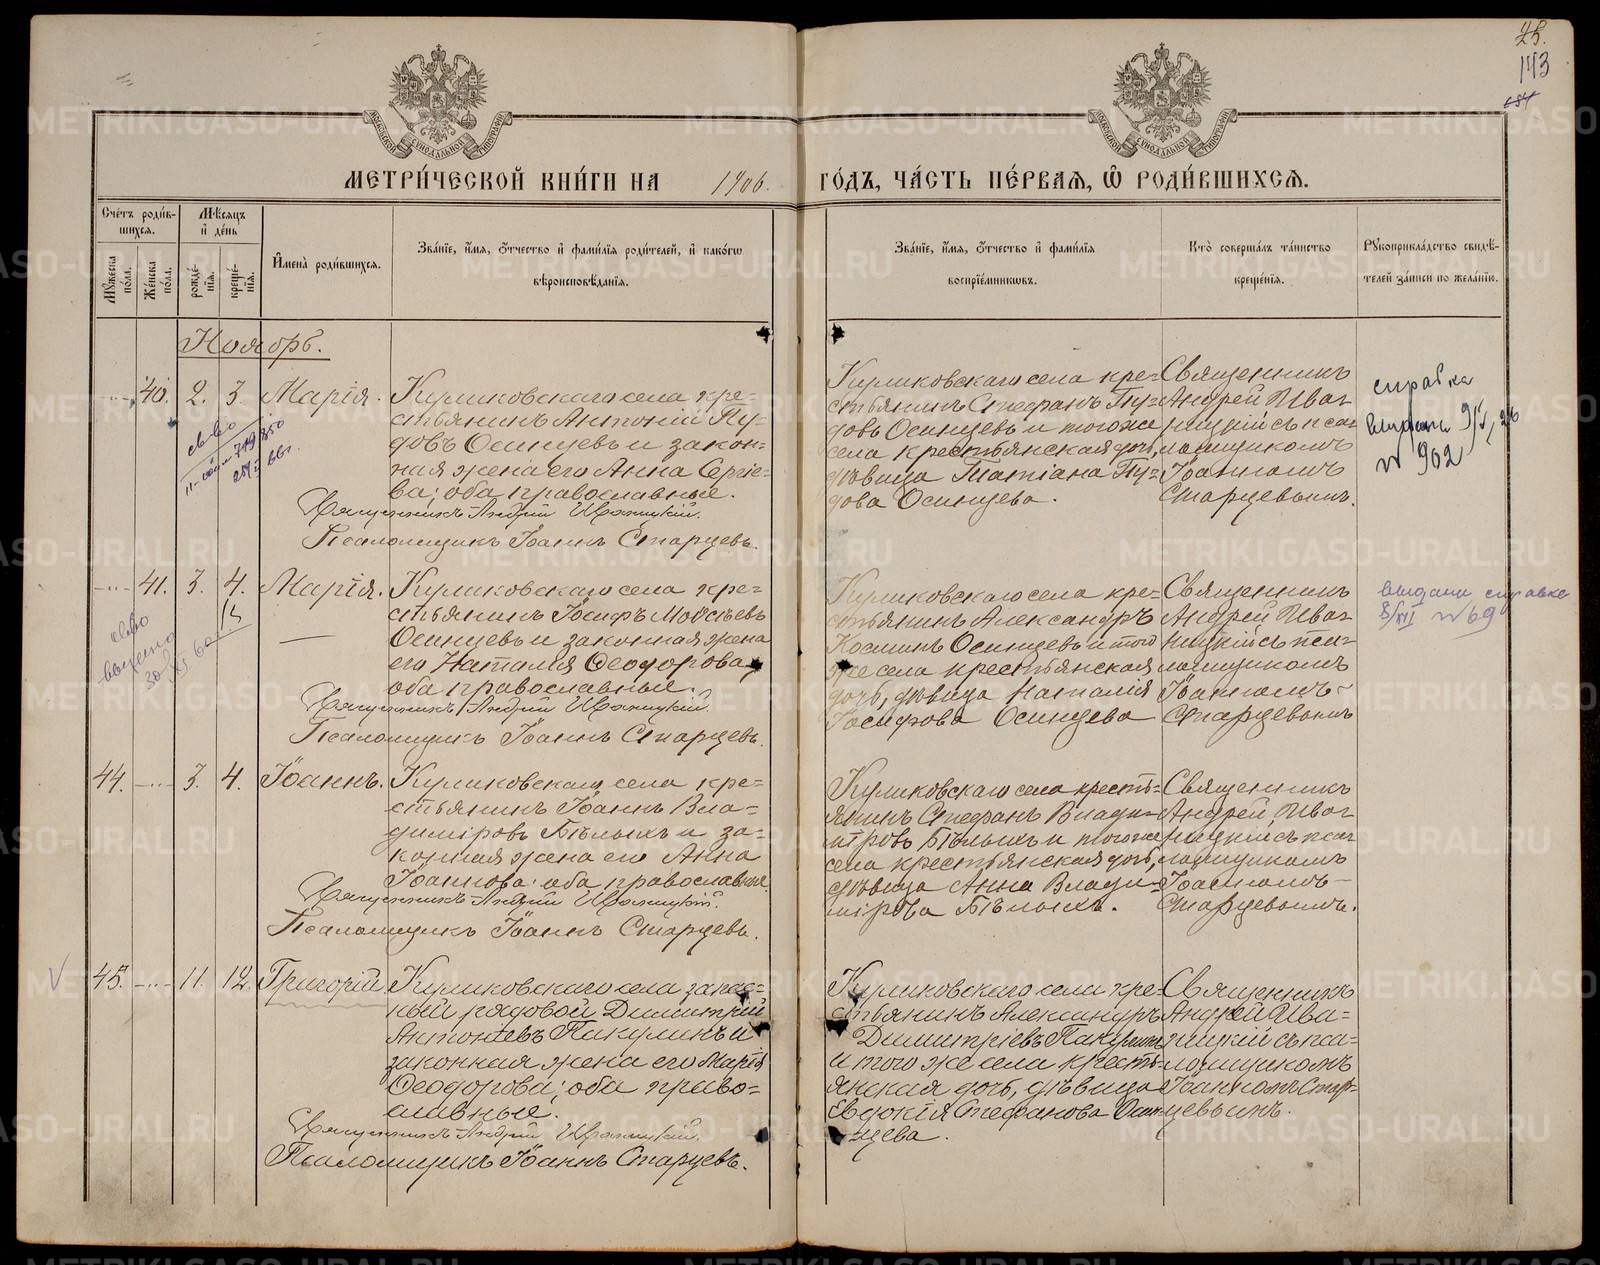 25.
143
МОСКОВСКОЙ СѴНОДАЛЬНОЙ ТИПОГРАФІИ
МОСКОВСКОЙ СѴНОДАЛЬНОЙ ТИПОГРАФІИ
МЕТРИ́ЧЕСКОЙ КНИ́ГИ НА 1906. ГО́ДЪ, ЧА́СТЬ ПЕ́РВАЯ, Ѡ РОДИ́ВШИХСЯ.
Сче́тъ роди́в-
шихся.
Мѣ́сяцъ
и҆ де́нь
Мꙋ́жеска
по́ла.
Же́нска
по́ла.
рожде́-
нїя.
креще́-
нїя.
И҆мена̀ роди́вшихся.
Зва́нїе, и҆́мя, ѻ҆́тчество и҆ фами́лїя роди́телей, и҆ како́гѡ
вѣроисповѣ́данїя.
Зва́нїе, и҆́мя, ѻ҆́тчество и҆ фами́лїя
воспрїе́мникѡвъ.
Кто̀ соверша́лъ та́инство
креще́нїя.
Рꙋкоприкла́дство свидѣ́-
телей за́писи по жела́нїю.
Ноябрь.
40. 2. 3. Марія.
Куликовскаго села кре=
стьянинъ Антоній Пу=
довъ Осинцевъ и закон=
ная жена его Анна Сергіе=
ва; оба православные.
Священникъ Андрей Иваницкій.
Псаломщикъ Іоаннъ Старцевъ.
Куликовскаго села кре=
стьянинъ Стефанъ Пу=
довъ Осинцевъ и того же
села крестьянская дочь,
дѣвица Татіана Пу=
дова Осинцева.
Священникъ
Андрей Ива=
ницкій съ пса=
ломщикомъ
Іоанномъ
Старцевымъ.
справка
выдана
№ 902
св-во
41. 3. 4. Марія.
Куликовскаго села кре=
стьянинъ Іосифъ Моѵсеевъ
Осинцевъ и законная жена
его Наталія Ѳеодорова,
оба православные.
Священникъ Андрей Иваницкій.
Псаломщикъ Іоаннъ Старцевъ.
Куликовскаго села кре=
стьянинъ Александръ
Косминъ Осинцевъ и того
же села крестьянская
дочь, дѣвица Наталія
Іосифова Осинцева
Священникъ
Андрей Ива=
ницкій съ пса=
ломщикомъ
Іоанномъ
Старцевымъ
выдана справка
8/XII № 69
св-во
выслано
44. 3. 4. Іоаннъ.
Куликовскаго села кре=
стьянинъ Іоаннъ Вла=
диміровъ Бѣлыхъ и за=
конная жена его Анна
Іоаннова: оба православные.
Священникъ Андрей Иваницкій.
Псаломщикъ Іоаннъ Старцевъ.
Куликовскаго села кресть=
янинъ Стефанъ Влади=
міровъ Бѣлыхъ и того же
села крестьянская дочь,
дѣвица Анна Влади=
мірова Бѣлыхъ.
Священникъ
Андрей Ива=
ницкій съ пса=
ломщикомъ
Іоанномъ
Старцевымъ.
45. 11. 12. Григорій
Куликовскаго села запас=
ный рядовой Димитрій
Антоніевъ Пакулинъ и
законная жена его Марія
Ѳеодорова; оба право=
славные.
Священникъ Андрей Иваницкій.
Псаломщикъ Іоаннъ Старцевъ.
Куликовскаго села кре=
стьянинъ Александръ
Димитріевъ Пакулинъ
и того же села кресть=
янская дочь, дѣвица
Евдокія Стефанова Осин=
цева.
Священникъ
Андрей Ива=
ницкій съ пса=
ломщикомъ
Іоанномъ Стар=
цевымъ.
METRIKI.GASO-URAL.RU